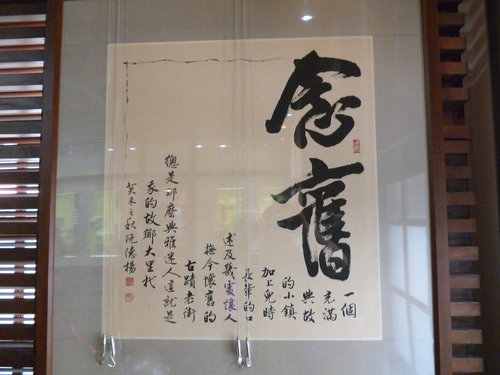 念舊
一個
充滿
典故
的小鎮
加上兒時
長輩的口
述及幾處讓人
撫今懷舊的
古蹟老街
總是那麼典雅迷人這就是
我的故鄉大里杙
癸未之秋阮德楊